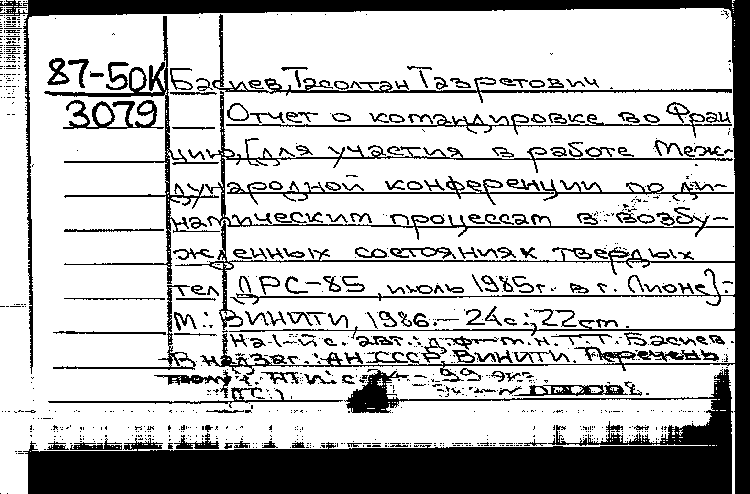 87-50К Басиев, Тасолтан Тазретович.
3079 Отчет о командировке во Фран
цию, [для участия в работе Меж-
дународной конференции по ди-
намическим процессам в возбу-
жденных состояниях твердых
тел ДРС-85, июль 1985г. в г. Лионе]-
М.: ВИНИТИ, 1986.- 24с.; 22см.
На 1-й с. авт.: д.ф-м.н. Т.Т. Басиев.
В надзаг.: АН СССР, ВИНИТИ. Перечень
с 24 - 99 экз